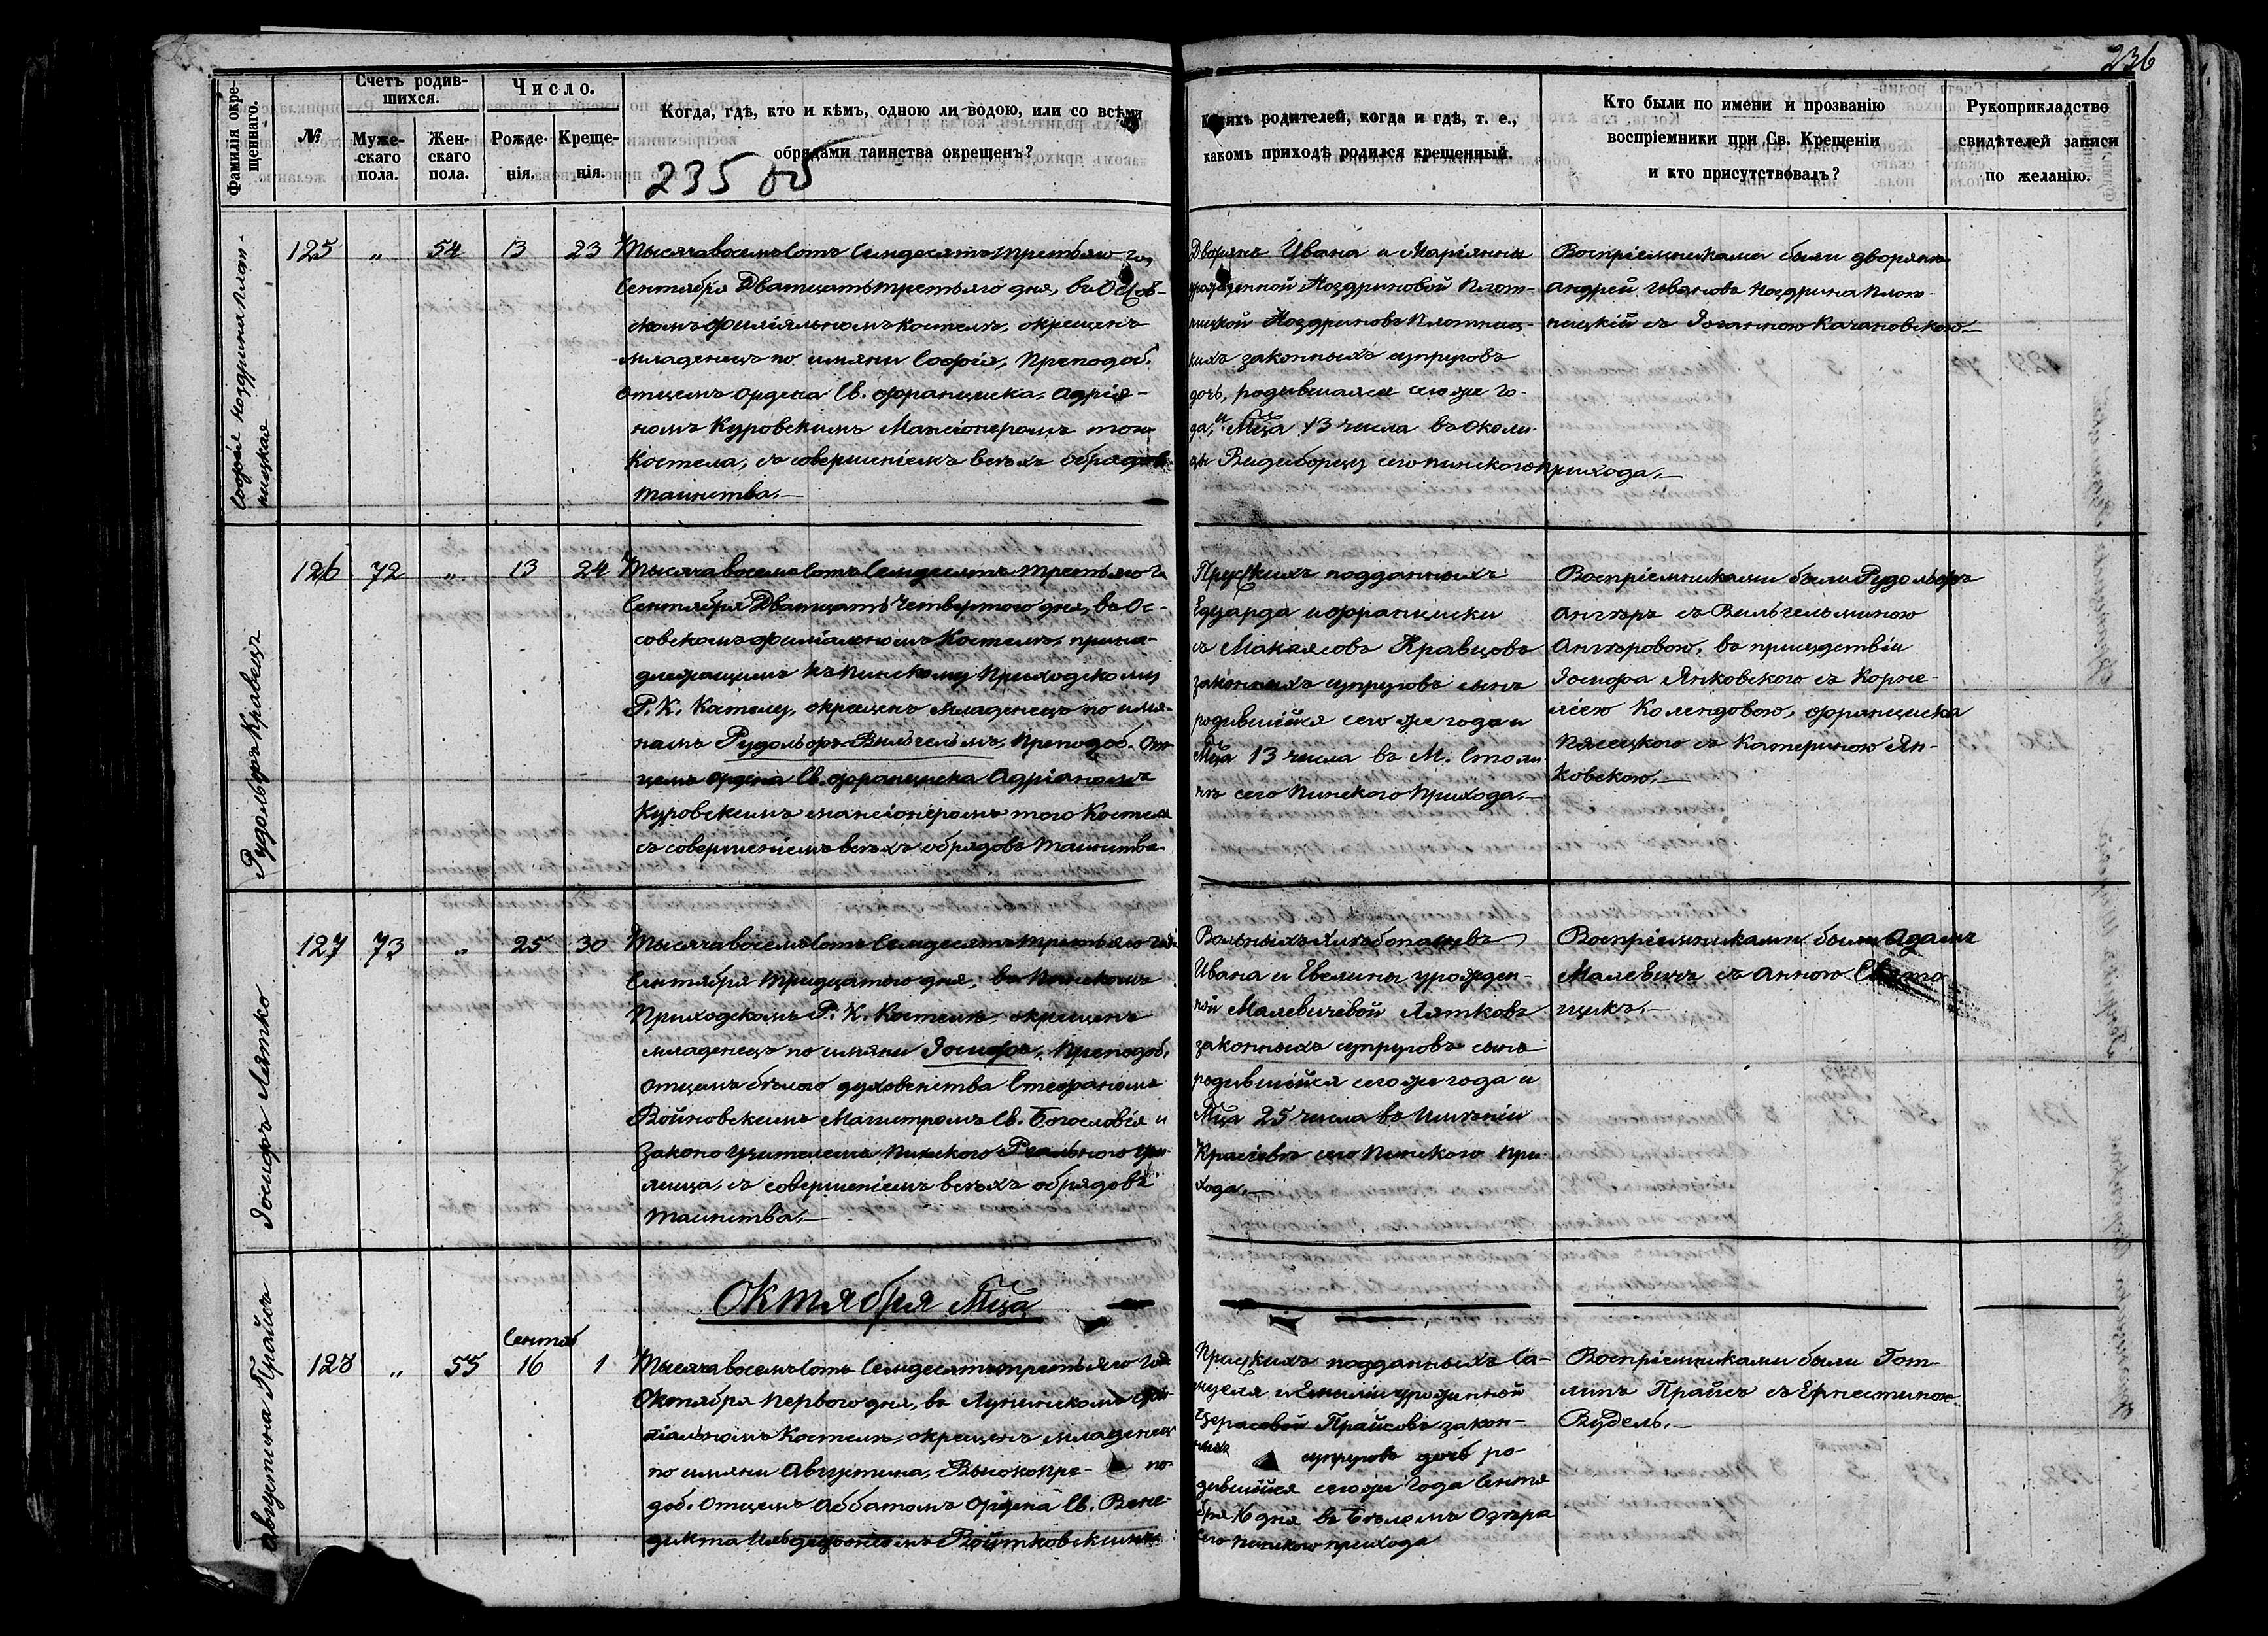 236
Фамилія окре-
щеннаго.
№
Счетъ родив-
шихся.
Муже-
скаго
пола.
Жен-
скаго
пола.
Число.
Рожде-
нія.
Креще-
нія.
Когда, гдѣ, кто и кѣмъ, одною ли водою, или со всѣми
обрядами таинства окрещенъ?
235 об
Какихъ родителей, когда и гдѣ, т. е.,
какомъ приходѣ родился крещенный.
Кто были по имени и прозванію
воспріемники при Св. Крещеніи
и кто присутствовалъ?
Рукоприкладство
свидѣтелей записи
по желанію.
Софія Ноздрина Плот-
ницкая
125 " 54 13 23
Тысяча восемь Сотъ Семдесятъ третьяго го
Сентября Дватцать третьяго дня, въ Осов-
скомъ филіяльномъ костелѣ, окрещенъ
младенецъ по имяни Софія, Преподоб.
отцемъ ордена Св. Франциска, Адрія-
номъ Куровскимъ Мансіонеромъ того
Костела, съ совершеніемъ всѣхъ обрядовъ
таинства.—
Дворянъ Ивана и Маріянны
урожденной Ноздриновой Плот-
ницкой Ноздриновъ Плотниц-
кихъ законныхъ супруговъ
дочь, родившаяся сего же го-
да, и Мца 13 числа въ околи-
цы Видиборецъ сего пинского прихода.—
Воспріемниками были дворяне
Андрей Ивановъ Ноздрина Плот-
ницкій съ Іоганною Качановскою.—
Рудольфъ Кравецъ
126 72 " 13 24
Тысяча восемь Сотъ Семдесятъ третьяго г
Сентября Дватцать Четвертого дня, въ Ос-
совскомъ филіальномъ Костелѣ, прина-
длежащимъ къ Пинскому Приходскому
Р. К. Костелу, окрещенъ младенецъ по имя-
намъ Рудольфъ-Вильгельмъ, Преподоб. От-
цемъ ордена Св. Франциска Адріаномъ
Куровскимъ мансіонеромъ того Костела
съ совершеніемъ всѣхъ обрядовъ таинства
Прусскихъ подданныхъ
Едуарда и Франциски
съ Макаясовъ Кравцовъ
законныхъ супруговъ сынъ
родившійся сего же года и
Мца 13 числа въ М. Столи-
нѣ сего Пинского Прихода.—
Воспріемниками были Рудольфъ
Ангеръ съ Вильгельминою
Ангеровою, въ присудствіи
Іосифа Янковского съ Корне-
ліею Колендовою, Франциска
Пясецкого съ Катериною Ян-
ковскою.—
Іосифъ Лятко
127 73 " 25 30
Тысяча восемь Сотъ Семдесятъ третьяго года
Сентября тридцатого дня, въ Пинскомъ
Приходскомъ Р. К. Костелѣ, окрещенъ
младенецъ по имяни Іосифъ, Преподоб.
отцемъ бѣлого духовенства Стефаномъ
Войновскимъ Магистромъ Св. Богословія и
Законоучителемъ Пинского Реального Учи-
лища, съ совершеніемъ всѣхъ обрядовъ
таинства.—
Вольныхъ хлѣбопашцевъ
Ивана и Евелины урожден-
ной Малевичевой Лятковъ
законныхъ супруговъ сынъ
родившійся сего же года и
Мца 25 числа въ имѣніи
сего Пинского При-
хода.—
Воспріемниками были Адамъ
Малевичъ съ Анною
щикъ.—
Октября Мца
Августина Прайсъ
128 " 55 Сентяб 16 1
Тысяча восемь Сотъ Семдесятъ третьяго года
Октября Первого дня, въ Лунинскомъ фи-
ліальномъ Костелѣ, окрещенъ младенецъ
по имяни Августина, Высокопре- по-
доб. Отцемъ Аббатомъ Ордена Св. Вене-
дикта Войтковскимъ
Прусскихъ подданныхъ Са-
муеля и Емиліи урожденной
Прайсовъ закон-
ныхъ супруговъ дочь ро-
дившійся сего же года Сентя-
бря 16 дня въ Бѣломъ Озѣра
сего Пинского прихода
Воспріемниками были Гот-
липъ Прайсъ съ Ернестиною
Вудель.—